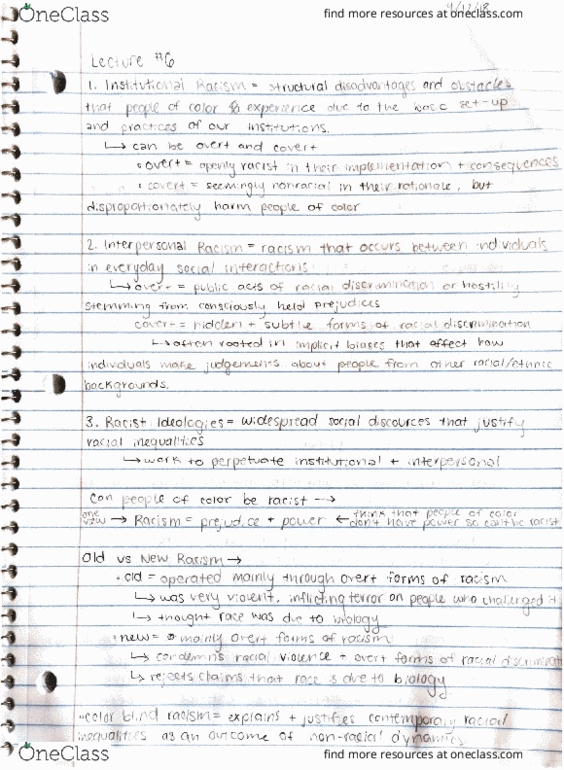 OneClass
find more resources at oneclass.com
4/12/18
Lecture #6
1. Institutional Racism = structural disadvantages and obstacles
that people of color experience due to the basic set-up
and practices of our institutions.
↳ can be overt and covert
• overt = openly racist in their implementation + consequences
• covert = seemingly nonracial in their rationale, but
disproportionately harm people of color
2. Interpersonal Racism = racism that occurs between individuals
in everyday social interactions
↳ overt = public acts of racial discrimination or hostility
stemming from consciously held prejudices
covert = hidden + subtle forms of racial discrimination
↳ often rooted in implicit biases that affect how
individuals make judgements about people from other racial/ethnic
backgrounds.
3. Racist Ideologies = widespread social discources that justify
racial inequalities
↳ work to perpetuate institutional + interpersonal
Can people of color be racist →
one view → Racism = prejudice + power ← think that people of color
don't have power so can't be racist
Old vs New Racism →
• old = operated mainly through overt forms of racism
↳ was very violent, inflicting terror on people who challenged it
↳ thought race was due to biology
• new = mainly overt forms of racism
↳ condemns racial violence + overt forms of racial discriminati
↳ rejects claims that race is due to biology
• color blind racism = explains + justifies contemporary racial
inequalities as an outcome of non-racial dynamics
OneClass
find more resources at oneclass.com